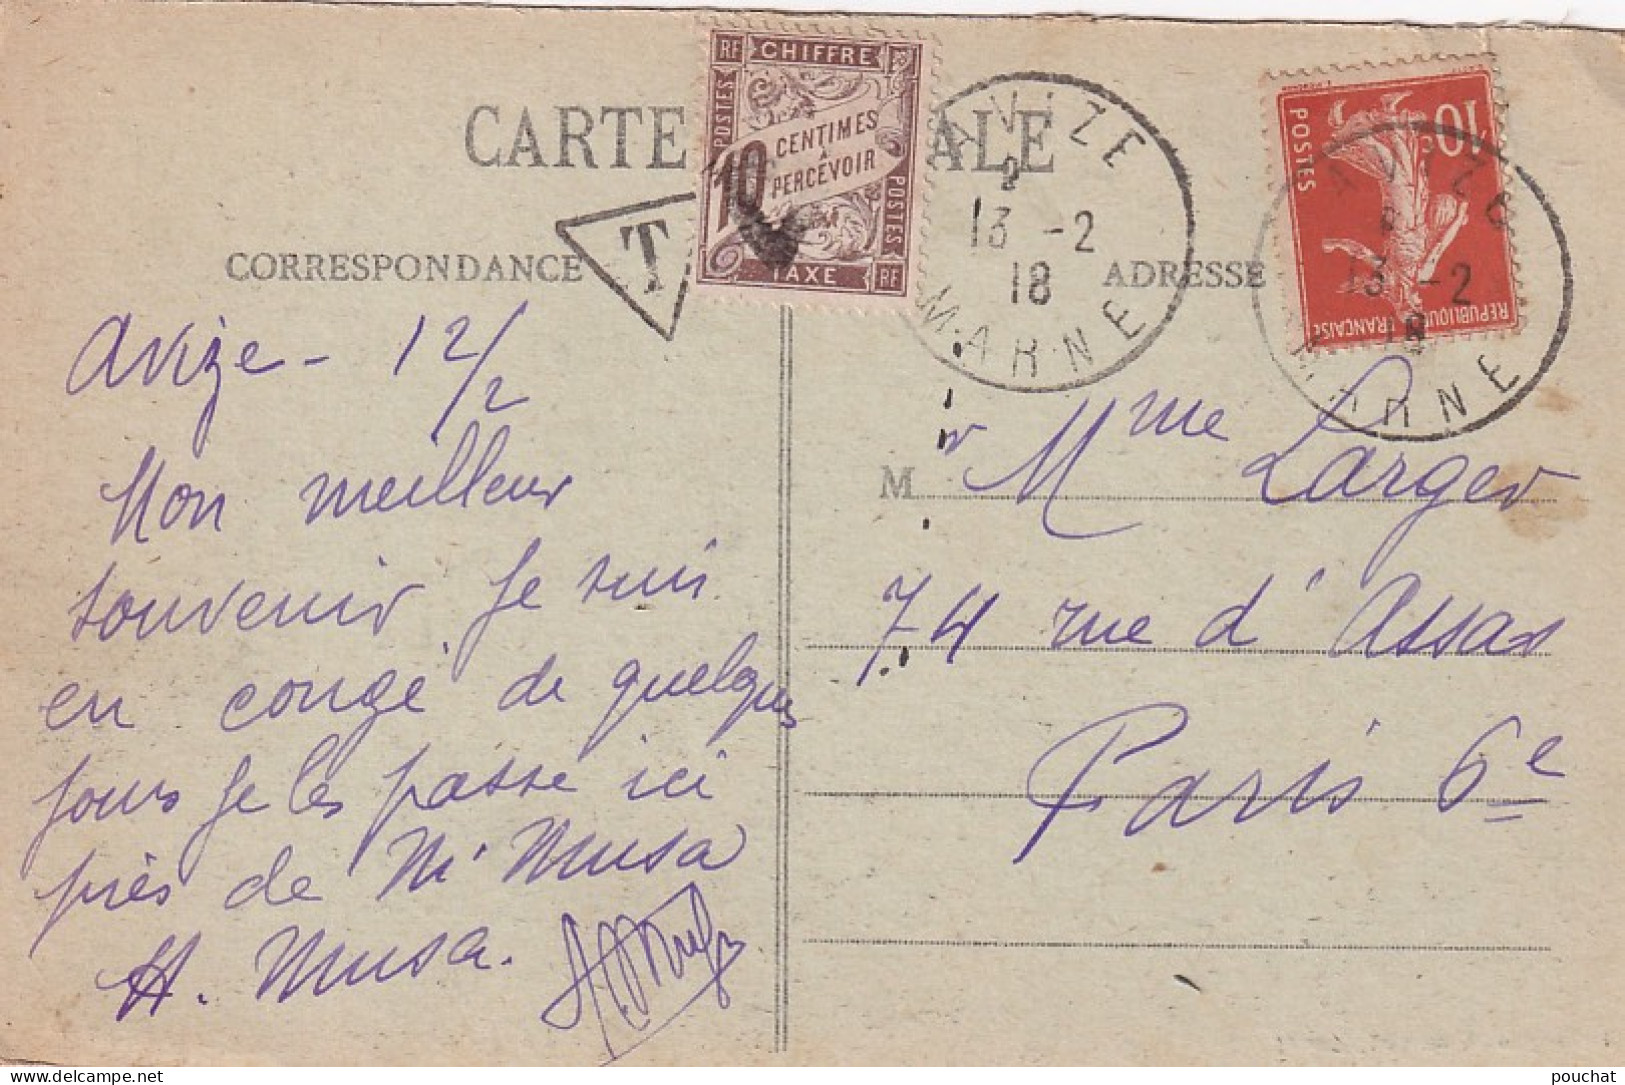 CARTE ALE
RF CHIFFRE
POSTES
10 CENTIMES
À
PERCEVOIR
POSTES
TAXE RF
T
AVIZE
2
13 -2
18
MARNE
10c
POSTES
REPUBLIQUE FRANÇAISE
AVIZE
13 -2
18
MARNE
CORRESPONDANCE
ADRESSE
Avize - 12/2
Mon meilleur
souvenir. Je suis
en congé de quelques
jours je les passe ici
près de Mr Musa
H. Musa.
M Mme Larger
74 rue d'Assas
Paris 6e
pouchat